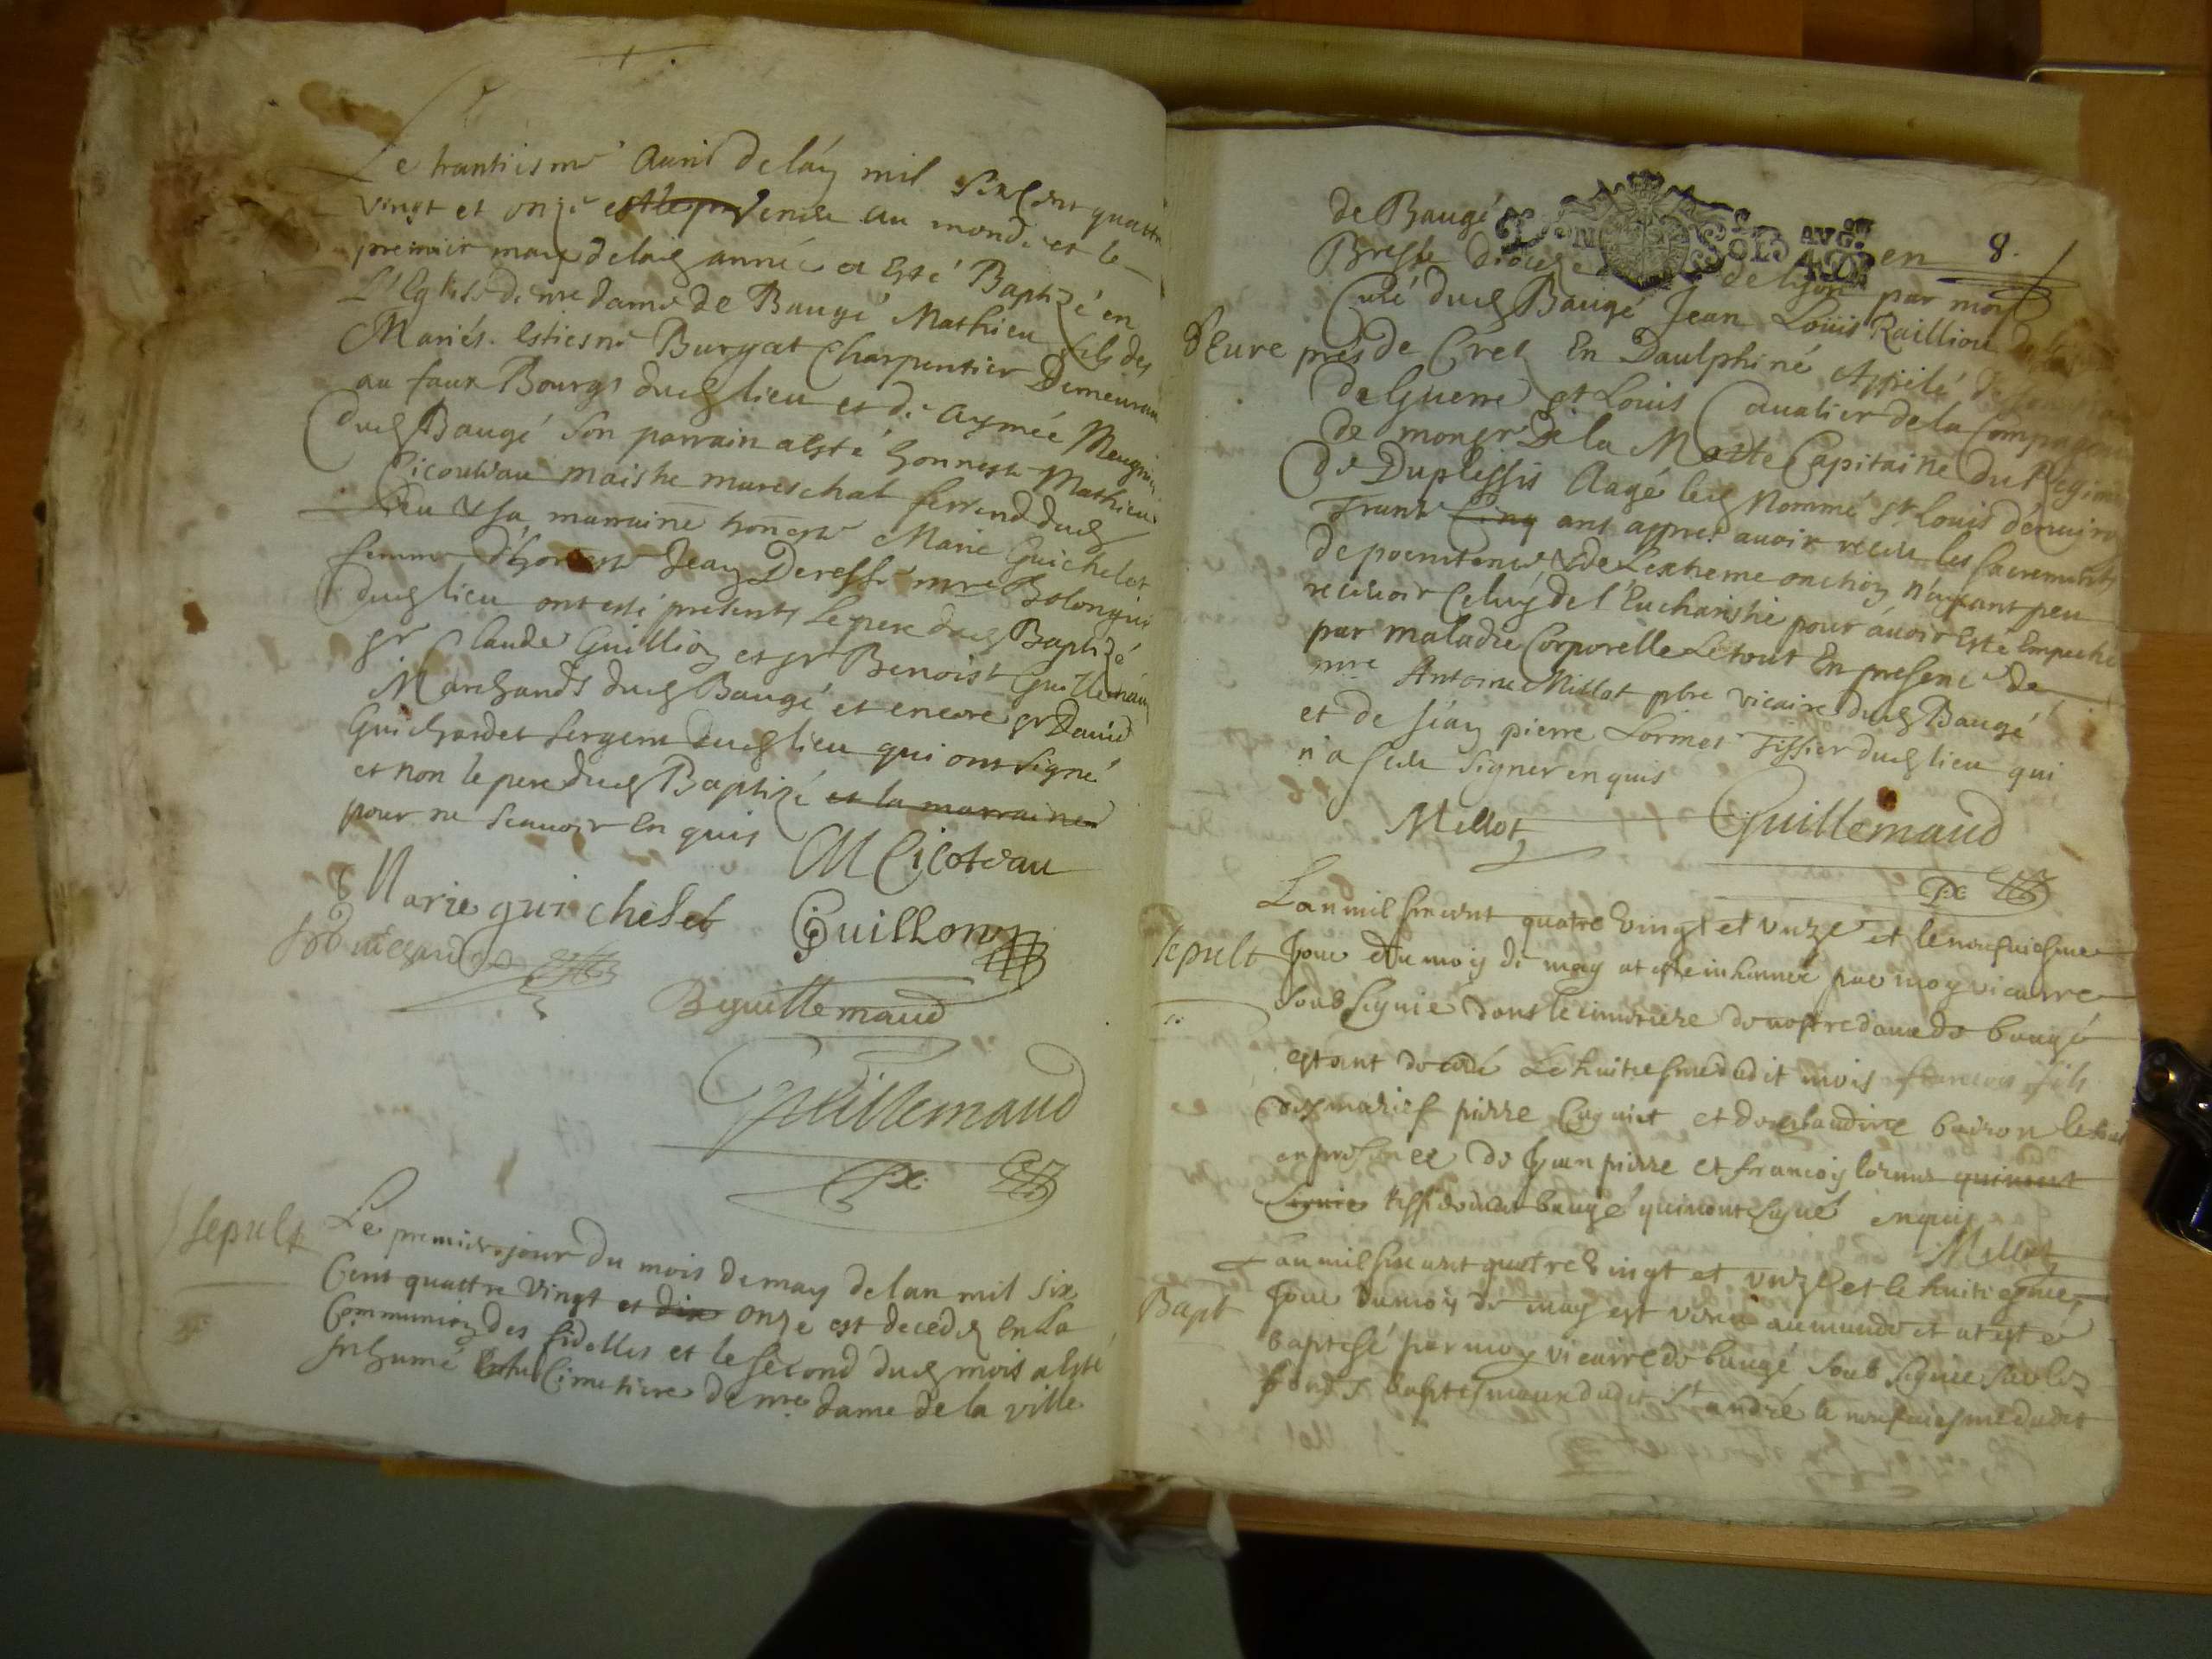 Le trantiesme Avril de lan mil six cent quattre
vingt et onze est venu au monde et le
premier may de lad année a Esté Baptizé en
L'Eglise de nre dame de Baugé Mathieu fils des
Mariés. Estiesne Burgat Charpentier Demeurant
au faux Bourgs dud lieu et de Aymée
dud Baugé Son parrain a Esté honneste Mathieu
Cicouteau maistre mareschal ferrand dud
lieu & sa marraine honneste Marie Guichelet
femme d'honneste Jean Deresse mre Bolongier
dud lieu ont esté presents Le pere dud Baptizé
sr Claude Guillion et sr Benoist Guillemaud
Marchands dud Baugé et encore sr David
Guichardet sergent dud lieu qui ont signé
et non le pere dud Baptizé et la marraine
pour ne scauoir Enquis
M Cicoteau
Marie guichelet Guillon
B guillemaud
Guillemaud
Sepult
Le premier jour du mois de may de lan mil six
Cent quattre vingt et dix onze est decedé en La
Communion des fidelles et le second dud mois a Esté
Inhumé Cimetiere de nre dame de la ville
8.
de Baugé en
Bresse Diocese de Lyon par moy
Curé dud Baugé Jean Louis Raillion
d'Eure prés de Crest En Daulphiné Appelé
de Guerre St Louis Caualier de la Compagnie
de monsr De la Motte Capitaine du Regiment
De Duplessis Aagé led Nommé St Louis d'enuiron
Trante Cinq ans appres auoir receu les sacrements
de poenitence & de L'extreme onction n'ayant peu
receuoir Celuy de l'Eucharistie pour auoir Esté Empeché
par maladie Corporelle Le tout En presence de
mre Antoine Millot pbre vicaire dud Baugé
et de Jean pierre Lormet Tissier dud lieu qui
n'a sceu signer enquis
Millot Guillemaud
Sepult
Lan mil six cent quatre vingt et unze et le noufuiesme
Jour du moy de may at esté inhumé par moy vicaire
soub signie dans le cimetiere de nostre dame de baugé
estant decedé Le huitiesme dudit mois francois fils
des maries pierre Cuguet et de claudine le tout
en presence de Jean pierre et francoy lormet qui nont
signie tissi dudit baugé qui nont signé enquis
Millot
Bapt
Lan mil six cent quatre vingt et unze et le huitiesme
Jour du moy de may est venu au monde et at esté
baptisé par moy vicaire de baugé soub signie sur les
fonds baptismaux dudit St andré le noufuiesme dudit